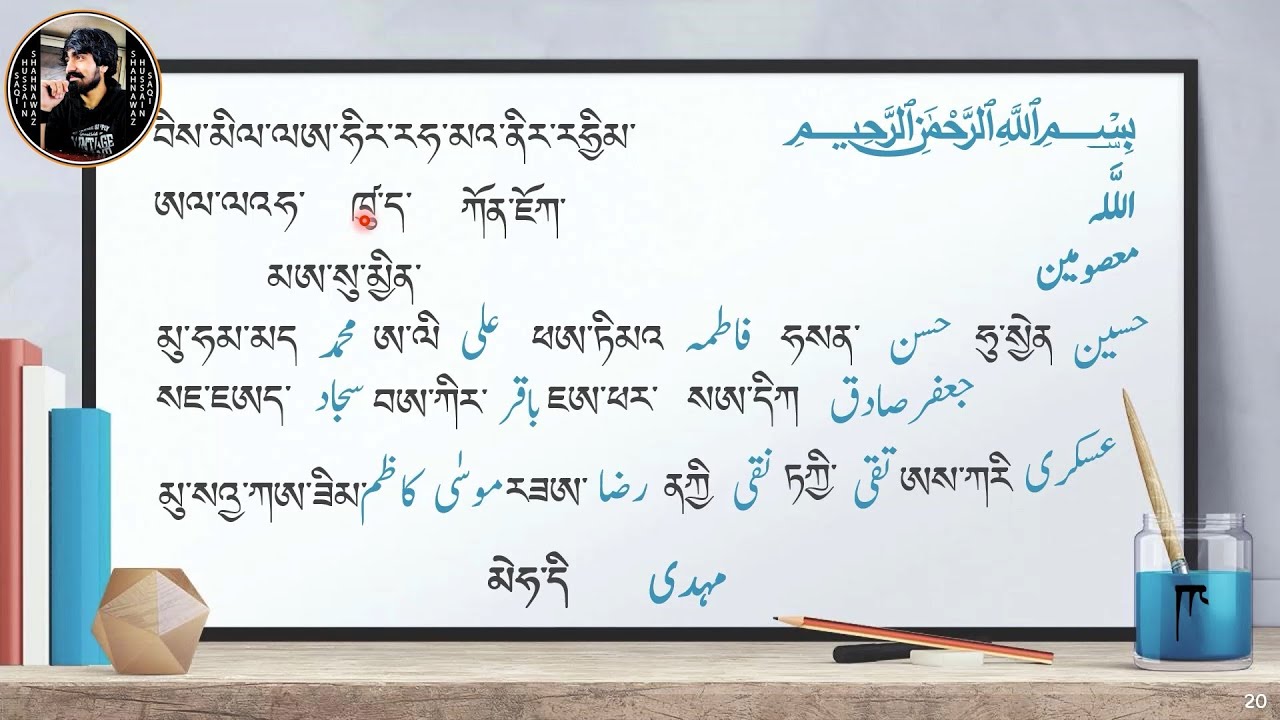 SAQI HUSSAIN SHAHNAWAZ SHAHNAWAZ HUSSAIN SAQI
VINTAGE
བིས་མིལ་ལཨ་ཧིར་རཧ་མའ་ནིར་རཧྱིམ་ بِسْمِ ٱللَّهِ ٱلرَّحْمَٰنِ ٱلرَّحِيمِ
ཨལ་ལའཧ་ ཁུ་ད་ ཀོན་ཇོཀ་ اللہ
མཨ་སུ་མྱིན་ معصومین
མུ་ཧམ་མད محمد ཨ་ལི علی ཕཨ་ཏིམའ فاطمہ ཧསན་ حسن ཧུ་སྱེན حسین
སཇ་ཇཨད་ سجاد བཨ་ཀིར་ باقر ཇཨ་ཕར་ སཨ་དིཀ جعفر صادق
མུ་སའྱ་ཀཨ་ཟིམ་ موسٰی کاظم རཟཨ་ رضا ནཀྱི نقی ཏཀྱི་ تقی ཨས་ཀརི عسکری
མེཧ་དི مہدی
20